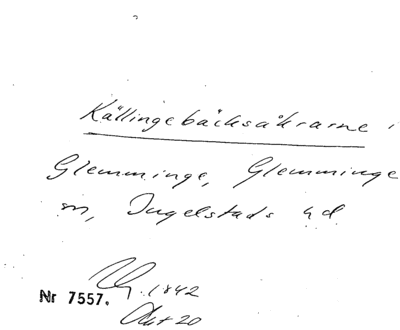 Källingebäcksåkrarne i
Glemminge, Glemminge
sn, Ingelstads hd
1842
Nr 7557.
Akt 20